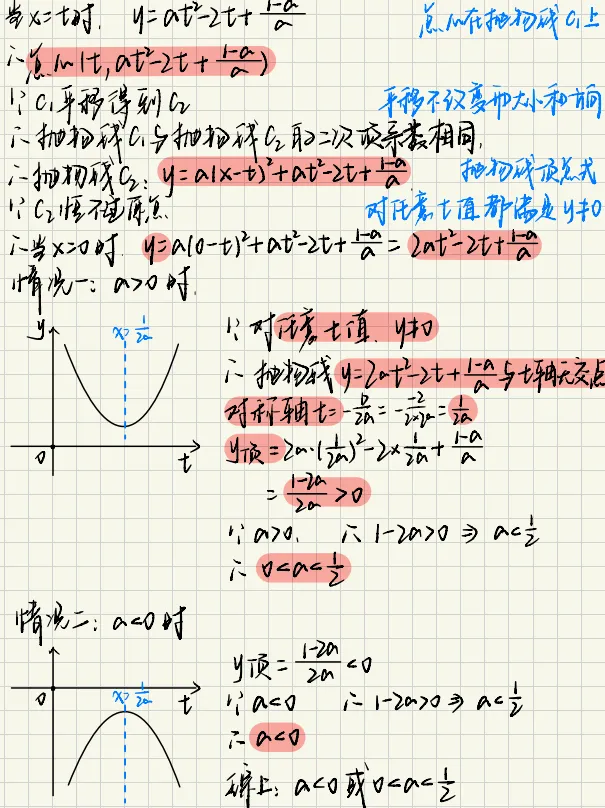 当x=t时, y=at²-2t+(1-a)/a 点M在抛物线C₁上
∴点M(t, at²-2t+(1-a)/a)
∵C₁平移得到C₂ 平移不改变形大小和方向
∴抛物线C₁与抛物线C₂取二次项系数相同,
∴抛物线C₂: y=a(x-t)²+at²-2t+(1-a)/a 抛物线顶点式
∵C₂恒不过原点 对任意t值都满足y≠0
∴当x=0时, y=a(0-t)²+at²-2t+(1-a)/a=2at²-2t+(1-a)/a
情况一: a>0时,
y
x=1/2a
0
t
∵对任意t值, y≠0
∴抛物线y=2at²-2t+(1-a)/a与t轴无交点
对称轴t=-b/2a=-(-2)/(2×2a)=1/2a
y顶=2a·(1/2a)²-2×1/2a+(1-a)/a
=(1-2a)/2a>0
∵a>0, ∴1-2a>0⇒a<1/2
∴0<a<1/2
情况二: a<0时
0
x=1/2a
t
y顶=(1-2a)/2a<0
∵a<0 ∴1-2a>0⇒a<1/2
∴a<0
综上: a<0或0<a<1/2